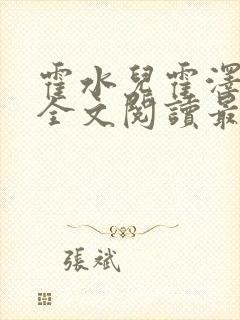 霍水兒霍澤
全文閱讀最
張斌